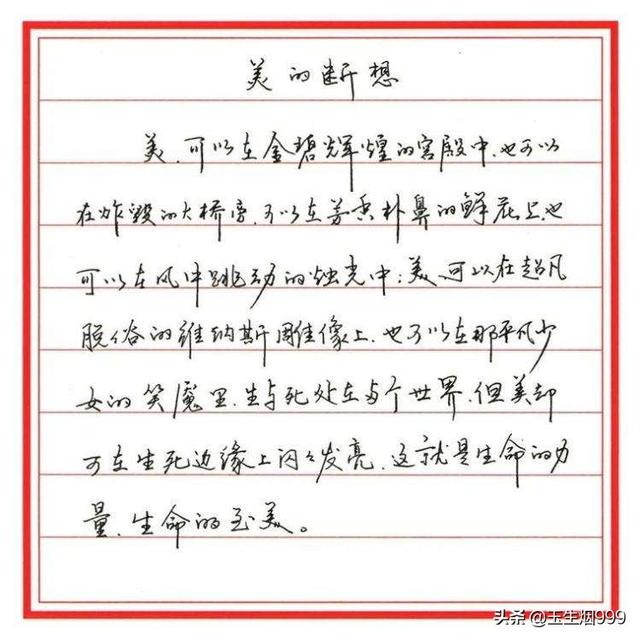 美的断想
美,可以在金碧辉煌的宫殿中,也可以
在炸毁的大桥旁,可以在芳香扑鼻的鲜花上,也
可以在风中跳动的烛光中;美,可以在超凡
脱俗的维纳斯雕像上,也可以在那平凡少
女的笑魇里,生与死处在两个世界,但美却
可在生死边缘上闪闪发亮,这就是生命的力
量,生命的至美。
头条 @玉生烟999